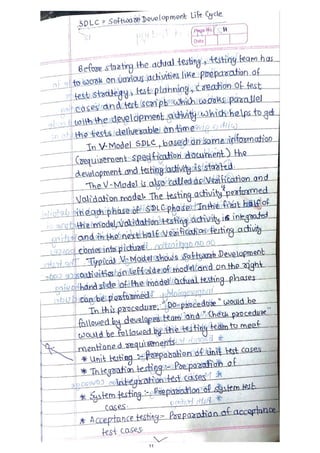 SDLC > Software Development Life Cycle
Page No. 11
Date
Before starting the actual testing, testing team has
to work on various activities like preparation of
test strategy, test planning, creation of test
cases and test script which works parallel
with the development activity which helps to get
the tests deliverable on time
In V-Model SDLC, based on same information
(requirement specification document) the
development and testing activity is started
The V-Model is also called as Verification and
Validation model. The testing activity performed
in each phase of SDLC phase. In the first half of
the model, validation testing activity is integrated
and in the next half Verification testing activity
comes into picture
Typical V-Model shows Software Development
activities on left side of model and on the right
hand side of the model actual testing phases
can be performed
In this procedure, "Do-procedure" would be
followed by developer team and "Check procedure"
would be followed by the testing team to meet
mentioned requirements
* Unit testing :- preparation of unit test cases
* Integration testing :- Preparation of
integration test cases
* System testing :- Preparation of system test
cases.
* Acceptance testing :- Preparation of acceptance
test cases
11